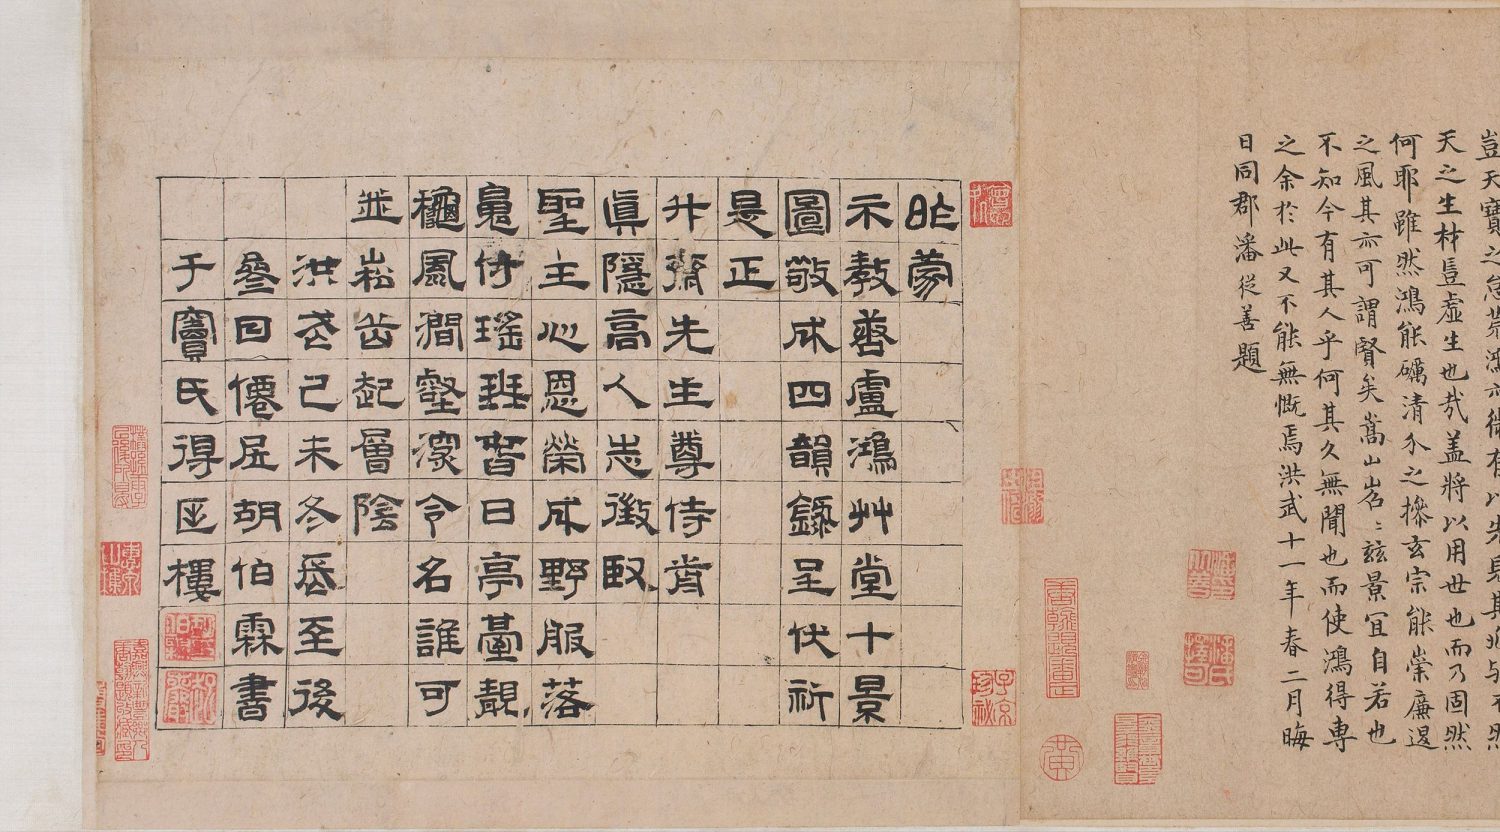 豈天寶之怠荒鴻亦微有以先見其兆與不然
天之生材豈虛生也哉盖將以用世也而乃固然
何耶雖然鴻能礪清介之操玄宗能崇廉退
之風其亦可謂賢矣嵩山岩〻茲景宜自若也
不知今有其人乎何其久無聞也而使鴻得專
之余於此又不能無慨焉洪武十一年春二月晦
日同郡潘從善題
昨蒙
示教唐盧鴻艸堂十景
圖敬成四韻錄呈伏祈
是正
升齋先生尊侍歬
眞隱高人志徵臤
聖主心恩榮成野服落
魄付瑤珡昔日亭臺靚
穐風澗壑深令名誰可
並崧岳起層陰
洪武己未冬至後
叅日僊居胡伯霖書
于竇氏得匡樓